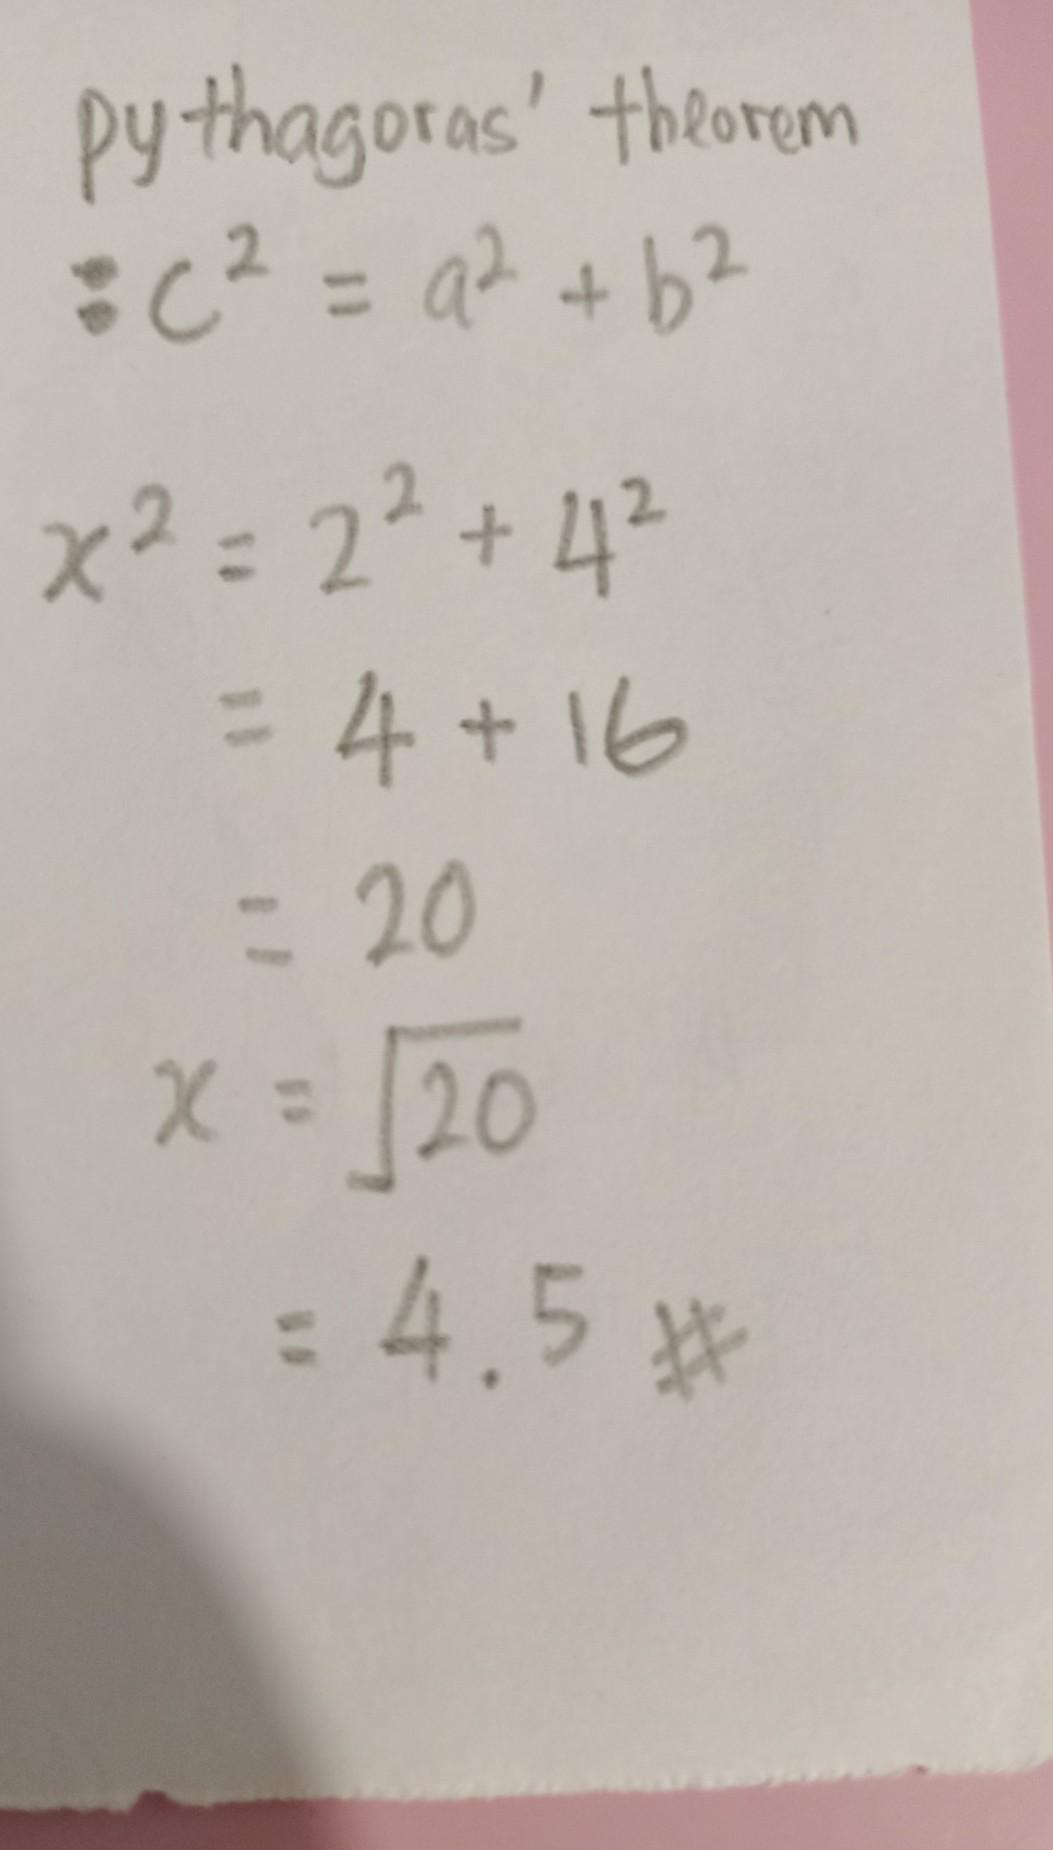 pythagoras' theorem
: c² = a² + b²
x² = 2² + 4²
= 4 + 16
= 20
x = √20
= 4.5 #